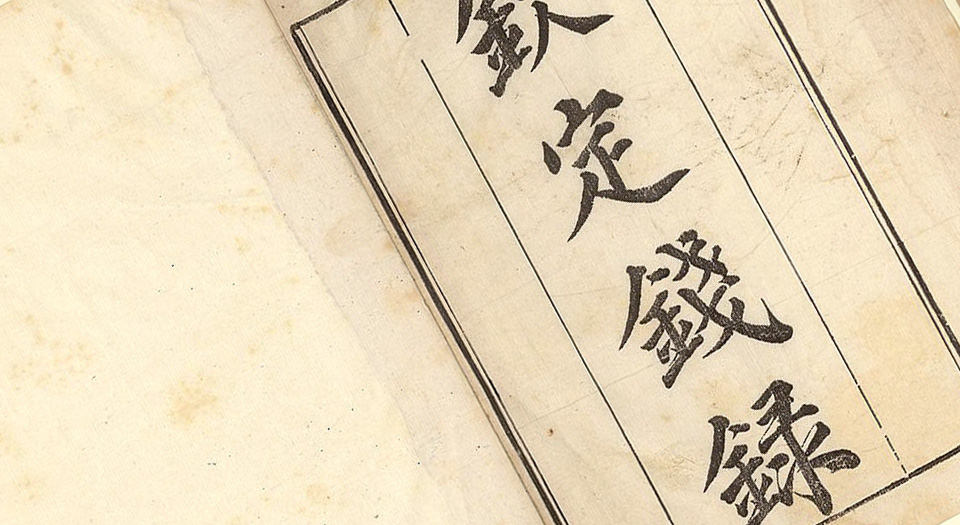 欽定錢錄